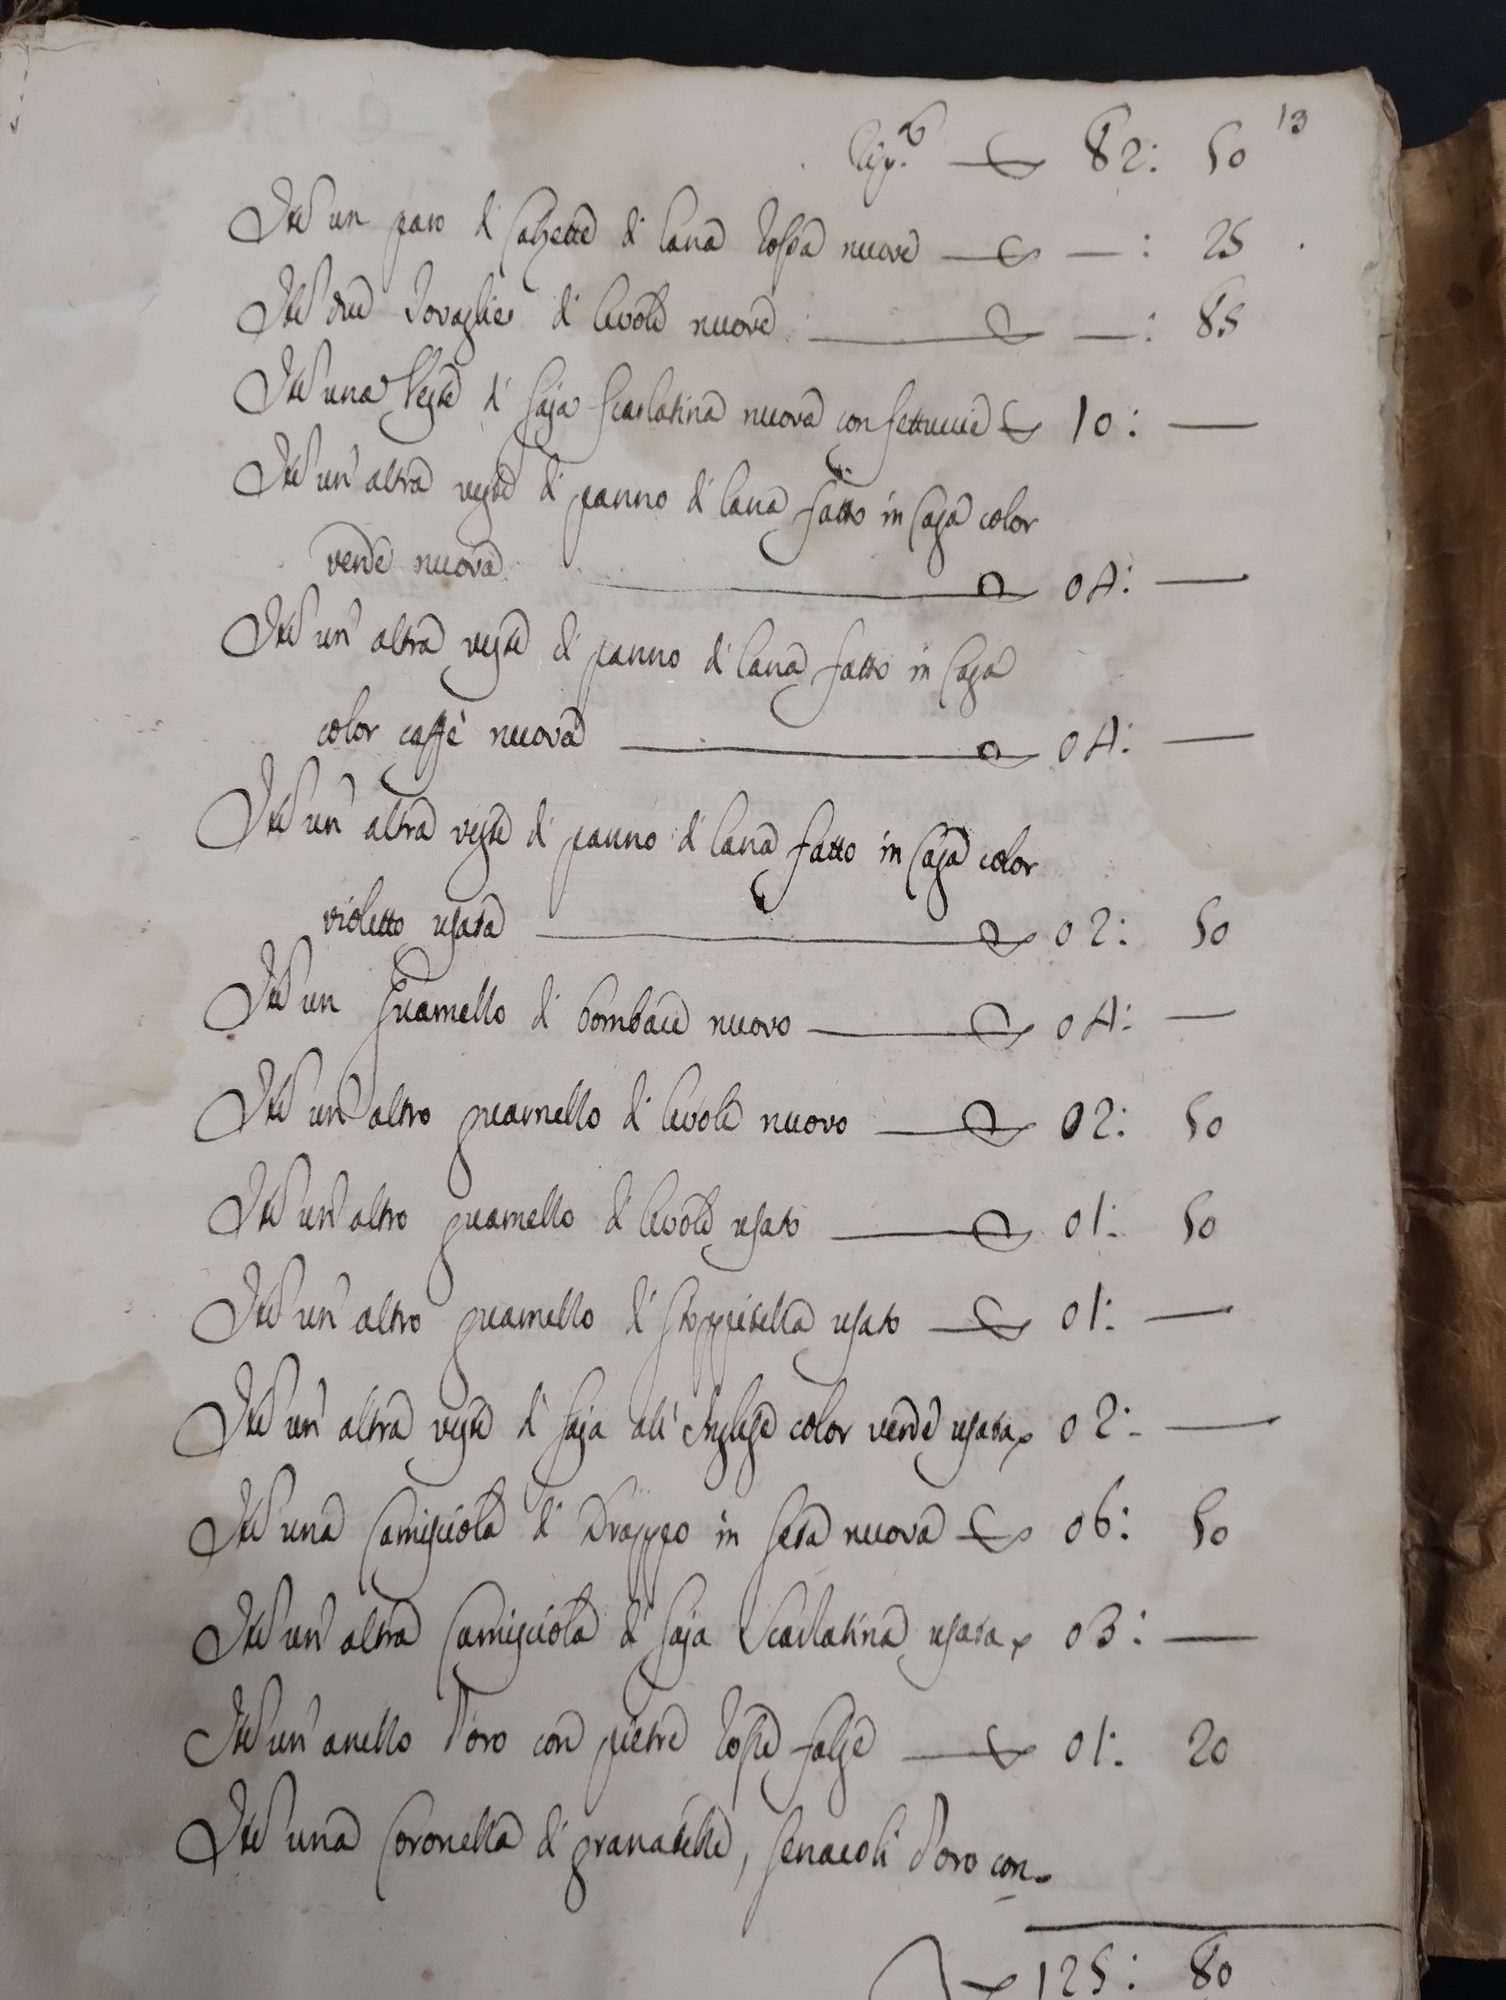 13
82: 50
Itē un paro di Calzette di lana rossa nuove — — : 25
Itē due Tovaglie di levole nuove — — : 85
Itē una Veste di saja scarlatina nuova con fettuccie 10: —
Itē un' altra veste di panno di lana fatto in casa color
verde nuova — 04: —
Itē un' altra veste di panno di lana fatto in casa
color caffè nuova — 04: —
Itē un' altra veste di panno di lana fatto in casa color
violetto usata — 02: 50
Itē un Guarnello di bombace nuovo — 04: —
Itē un' altro guarnello di levole nuovo — 02: 50
Itē un' altro guarnello di levole usato — 01: 50
Itē un' altro guarnello di stoppitella usato — 01: —
Itē un' altra veste di saja all' Inglese color verde usata 02: —
Itē una Camisciola di Drappo in seta nuova — 06: 50
Itē un' altra Camisciola di saja Scarlatina usata 03: —
Itē un' anello d'oro con pietre rosse false — 01: 20
Itē una Coronella di granatelle, senacoli d'oro con
125: 80